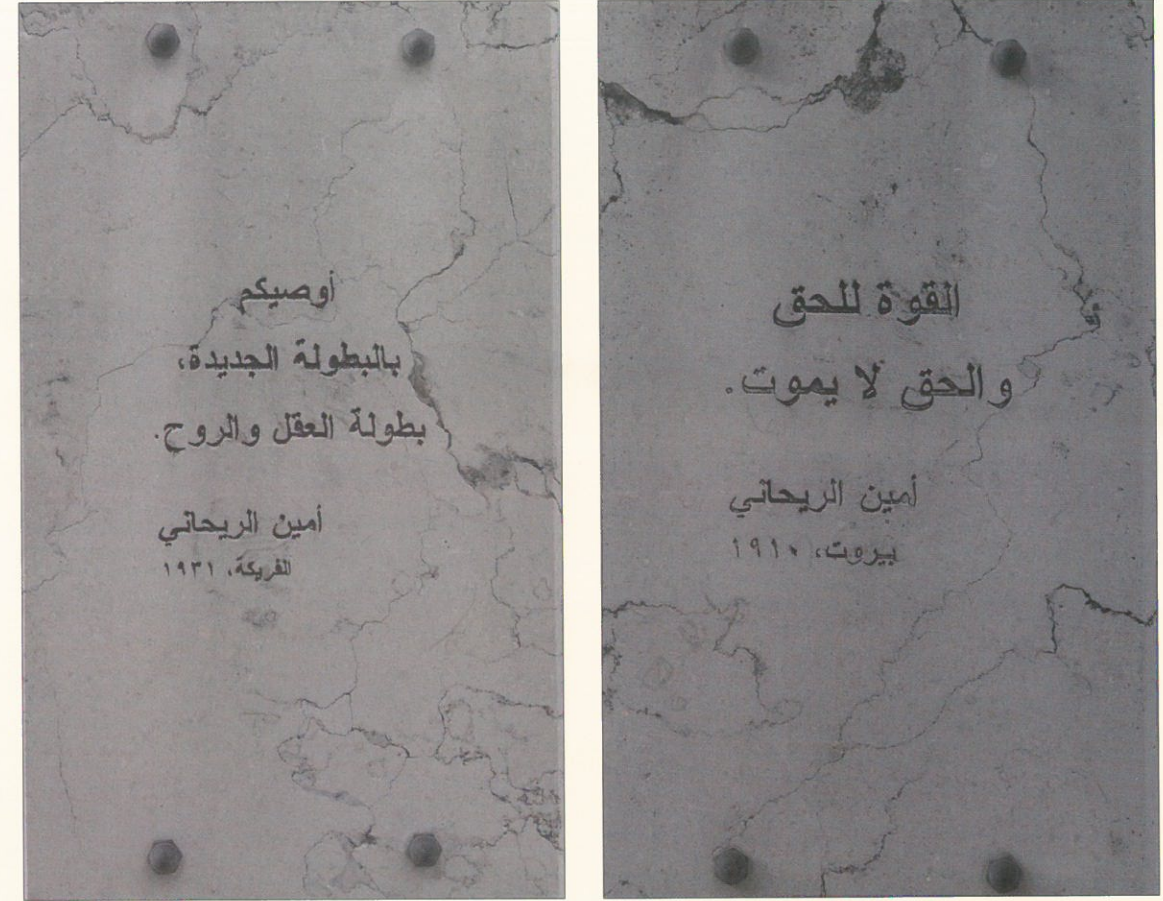 القوة للحق
والحق لا يموت.
أمين الريحاني
بيروت، ١٩١٠
أوصيكم
بالبطولة الجديدة،
بطولة العقل والروح.
أمين الريحاني
الفريكة، ١٩٣١